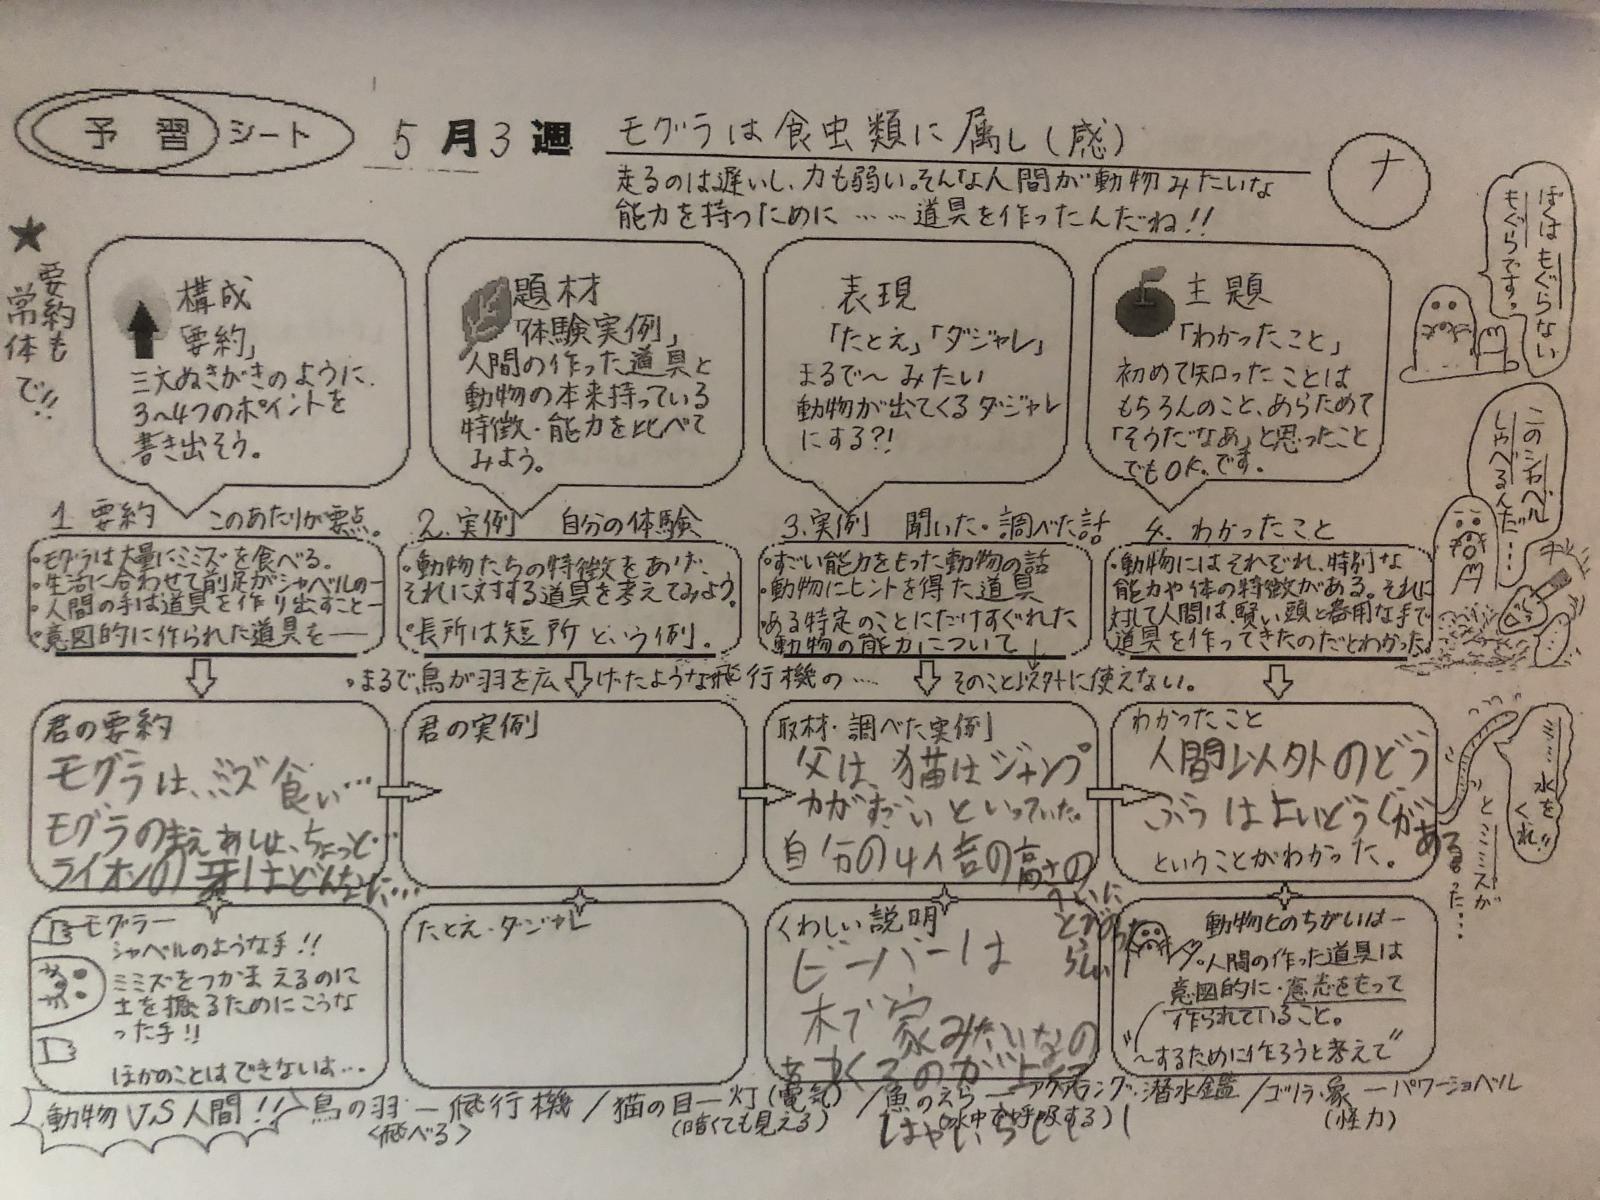 予習シート
5月3週
モグラは食虫類に属し(感)
ナ
走るのは遅いし、力も弱い。そんな人間が動物みたいな
能力を持つために……道具を作ったんだね!!
★要約も
常体で!!
構成
「要約」
三文ぬきがきのように、
3~4つのポイントを
書き出そう。
題材
「体験実例」
人間の作った道具と
動物の本来持っている
特徴・能力を比べて
みよう。
表現
「たとえ」「ダジャレ」
まるで~みたい
動物が出てくるダジャレ
にする?!
主題
「わかったこと」
初めて知ったことは
もちろんのこと、あらためて
「そうだなあ」と思ったこと
でもOK。です。
ぼくはもぐらない
もぐらです。
このシャベル
しゃべるんだ…
1 要約 このあたりが要点。
・モグラは大量にミミズを食べる。
・生活に合わせて前足がシャベルの―
・人間の手は道具を作り出すこと―
・意図的に作られた道具を――
2.実例 自分の体験
・動物たちの特徴をあげ、
それに対する道具を考えてみよう。
・長所は短所という例。
3.実例 聞いた・調べた話
・すごい能力をもった動物の話
・動物にヒントを得た道具
・ある特定のことにだけすぐれた
動物の能力について
↓
そのこと以外に使えない。
4. わかったこと
・動物にはそれぞれ、特別な
能力や体の特徴がある。それに
対して人間は、賢い頭と器用な手で
道具を作ってきたのだとわかった。
・まるで鳥が羽を広げたような飛行機の……
君の要約
モグラは、ミミズ食い…
モグラのまえあしは、ちょっと…
ライオンの牙はどんなに…
君の実例
取材・調べた実例
父は、猫はジャンプ
力がすごいといっていた。
自分の4人ぶんの高さの
へいに
とびのった
らしい
わかったこと
人間以外のどう
ぶつはよいどうぐがある
ということがわかった。
ミミズ 水を
くれ!!
とミミズが
った…
モグラー
シャベルのような手!!
ミミズをつかまえるのに
土を掘るためにこうな
った手!!
ほかのことはできないよ…
たとえ・ダジャレ
くわしい説明
ビーバーは
木で家みたいなの
をつくるのが上手
動物とのちがいは―
人間の作った道具は
意図的に・意志をもって
作られていること。
"~するために作ろうと考えて"
動物VS人間!! 鳥の羽―飛行機/猫の目―灯(電気)/魚のえら―アクアラング・潜水鑑/ゴリラ・象―パワーショベル
<飛べる> (暗くても見える) (水中で呼吸する) (怪力)